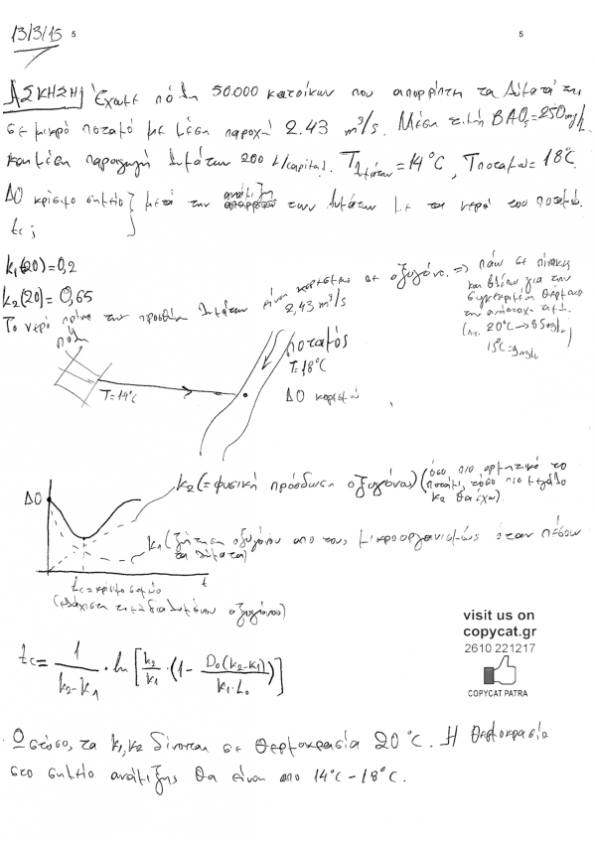 13/3/15 5
5
ΑΣΚΗΣΗ Έχουμε πόλη 50.000 κατοίκων που απορρίπτει τα λύματά της
σε μικρό ποταμό με μέση παροχή 2.43 m³/s. Μέση τιμή BAO₅=250mg/L
και μέση παραγωγή λυμάτων 200 L/capita d. Tλυμάτων=14°C, Tποταμού=18°C.
ΔΟ κρίσιμο σημείο } μετά την ανάμιξη των λυμάτων με το νερό του ποταμού.
tc ;
k₁(20)=0,2
k₂(20)=0,65
Το νερό πριν την προσθήκη λυμάτων είναι κορεσμένο σε οξυγόνο. ⇒ πάω σε πίνακες
και βλέπω για την
συγκεκριμένη θερμοκρ.
την αντίστοιχη τιμή.
(πχ. 20°C→85mg/L
15°C=9mg/L
2,43 m³/s
πόλη
T=14°C
ποταμός
T=18°C
ΔΟ κορεσμού
ΔΟ
k₂(=φυσική πρόσδωση οξυγόνου) (όσο πιο ορμητικό το
ποτάμι, τόσο πιο μεγάλο
k₂ θα έχω).
k₁ (ζήτηση οξυγόνου από τους μικροοργανισμούς όταν πέσουν
τα λύματα)
t
tc=κρίσιμο σημείο
(ελάχιστη τιμή διαλυμένου οξυγόνου)
tc = 1/(k₂-k₁) · ln [k₂/k₁ · (1 - D₀(k₂-k₁)/(k₁·L₀))]
visit us on
copycat.gr
2610 221217
COPYCAT PATRA
Ωστόσο, τα k₁,k₂ δίνονται σε θερμοκρασία 20°C. Η θερμοκρασία
στο σημείο ανάμιξης θα είναι από 14°C-18°C.